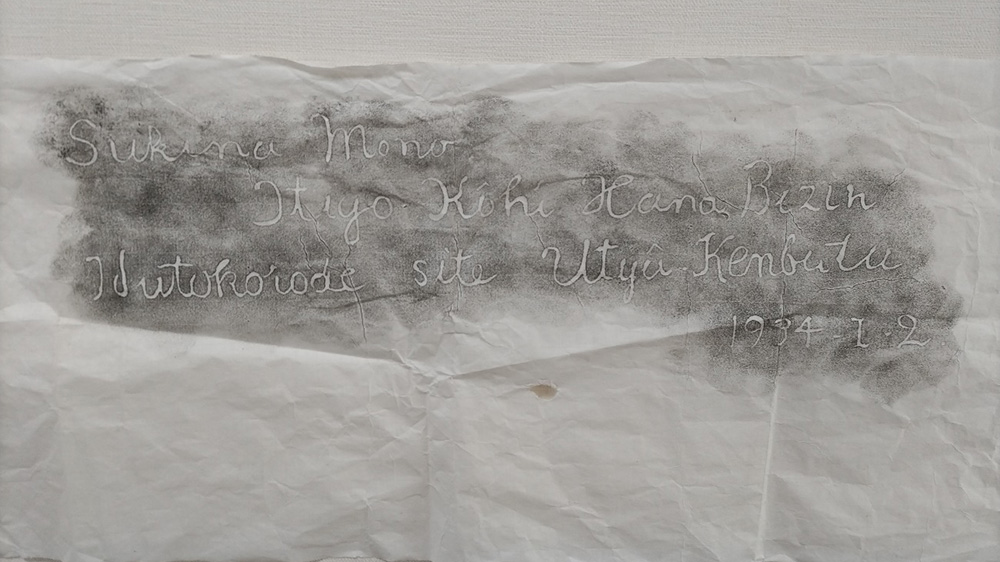 Sukina Mono
Itigo Kôhî Hana Bizin
Hutokorode site Utyû Kenbutu
1934-I-2